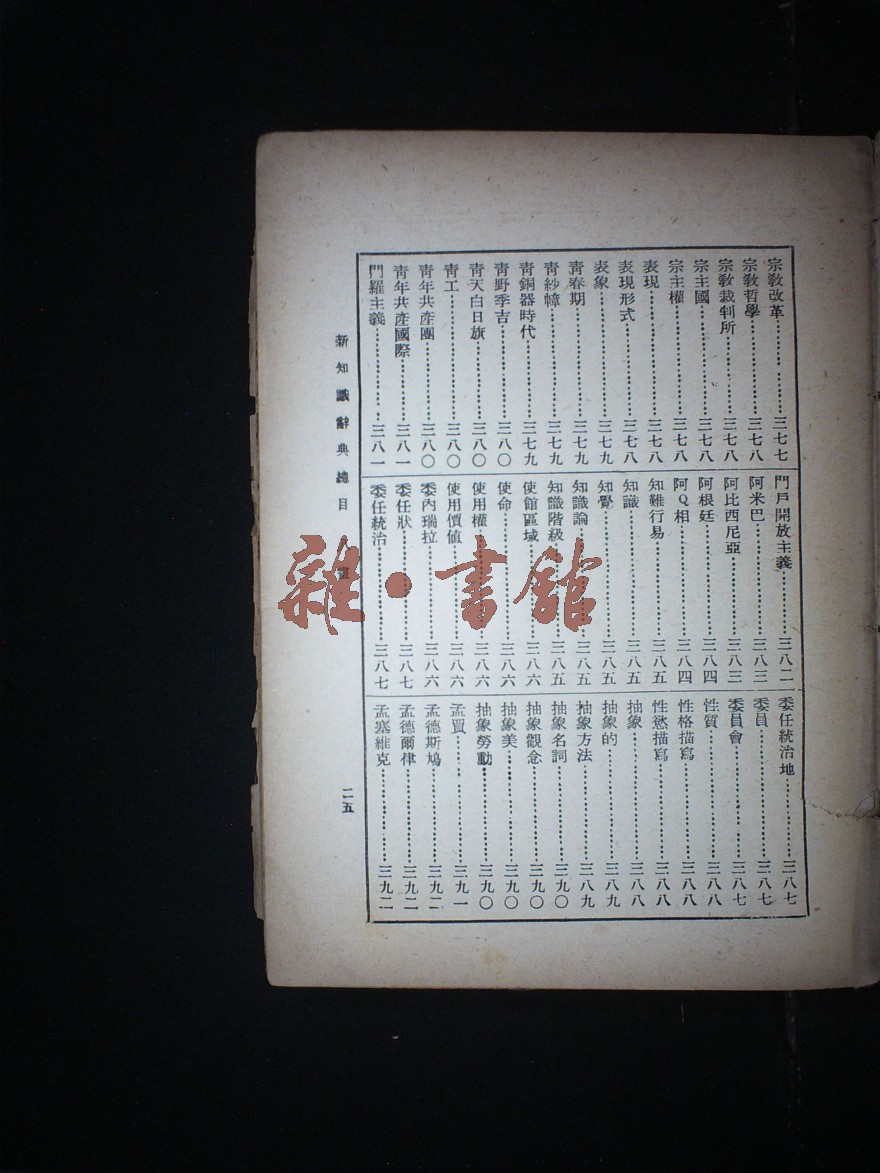 宗敎改革………………三七七
宗敎哲學………………三七八
宗敎裁判所………………三七八
宗主國………………三七八
宗主權………………三七八
表現………………三七八
表現形式………………三七八
表象………………三七九
靑春期………………三七九
靑紗幛………………三七九
靑銅器時代………………三七九
靑野季吉………………三八〇
靑天白日旗………………三八〇
靑工………………三八〇
靑年共產團………………三八〇
靑年共產國際………………三八一
門羅主義………………三八一
門戶開放主義………………三八二
阿米巴………………三八三
阿比西尼亞………………三八三
阿根廷………………三八四
阿Q相………………三八四
知難行易………………三八五
知識………………三八五
知覺………………三八五
知識論………………三八五
知識階級………………三八五
使館區域………………三八六
使命………………三八六
使用權………………三八六
使用價値………………三八六
委內瑞拉………………三八六
委任狀………………三八七
委任統治………………三八七
委任統治地………………三八七
委員………………三八七
委員會………………三八七
性質………………三八八
性格描寫………………三八八
性慾描寫………………三八八
抽象………………三八八
抽象的………………三八九
抽象方法………………三八九
抽象名詞………………三九〇
抽象觀念………………三九〇
抽象美………………三九〇
抽象勞動………………三九〇
孟買………………三九一
孟德斯鳩………………三九二
孟德爾律………………三九二
孟塞維克………………三九二
新知識辭典總目
二五
雜·書館